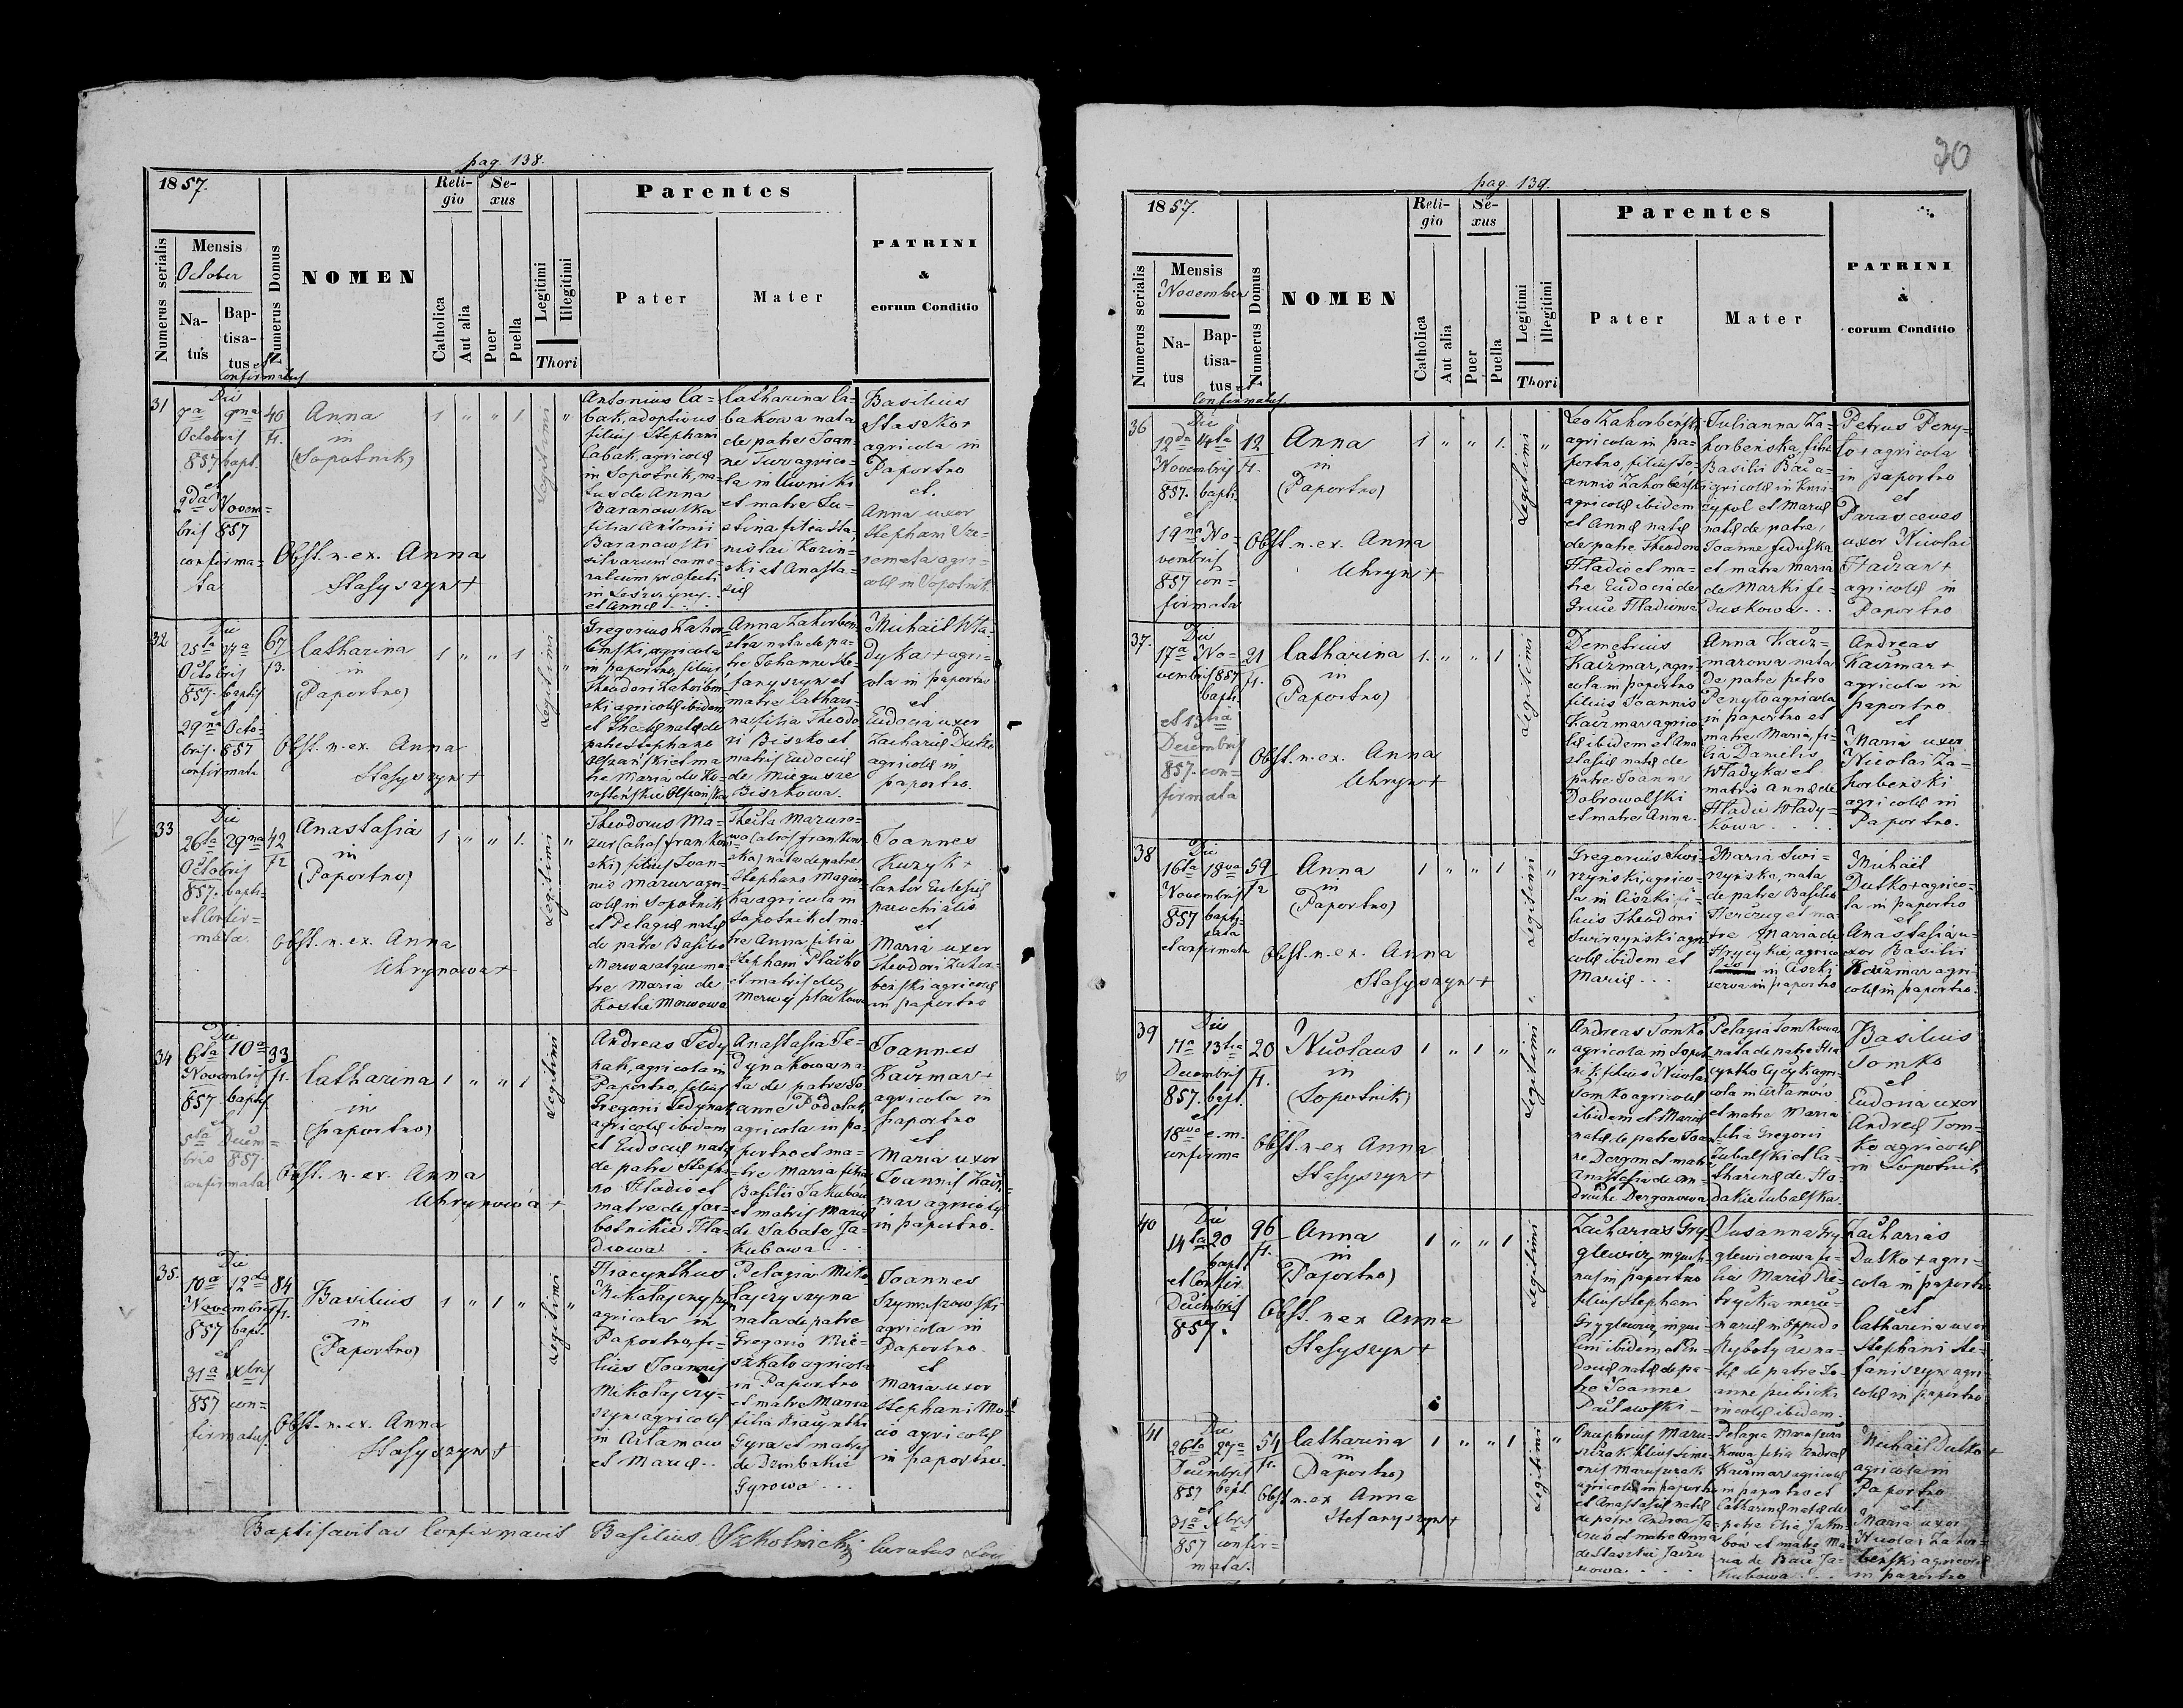 pag. 138.
1857.
Numerus serialis
Mensis
October
Natus
Baptisatus et
Confirmatus
Numerus Domus
NOMEN
Religio
Catholica
Aut alia
Sexus
Puer
Puella
Legitimi
Illegitimi
Thori
Parentes
Pater
Mater
PATRINI
&
eorum Conditio
31
Die
7ma 9na
Octobris
857 bapt.
et
2da Novem=
bris 857
confirma=
ta
40
Anna
in
(Sopotnik)
Obst. n. ex. Anna
Stasyszyn +
1 " " 1
Legitimi
"
Antonius Ca=
bak, adoptivus
filius Stephani
Cabak, agricolae
in Sopotnik, na=
tus de Anna
Baranowska
filia Antonii
Baranowski
et Annae
Catharina Ca=
bakowa nata
de patre Joan=
ne Turo agrico=
la in
et matre Ju=
stina filia
et Anasta=
siae
Basilius
Staszko +
agricola in
Paportno
et.
Anna uxor
Stephani Sze=
remeta agri=
colae in Sopotnik
32
Die
25ta 27a
Octobris
857. baptis
et
29na Octo=
bris. 857
confirmata
67
Catharina
in
(Paportno)
Obst. n. ex. Anna
Stasyszyn +
1 " " 1
Legitimi
"
Gregorius Zahor=
beński, agricola
in paportno, filius
Theodori Zahorbeń=
ski agricolae ibidem
et Theclae natae de
patre Stephano
Olszański et ma
tre Maria de
Olszańska
Anna Zahorbeń=
ska nata de pa=
tre Johanne Ste=
fanyszyn et
matre Cathari=
na filia Theodo
ri Biszko et
matris Eudociae
de
Biszkowa.
Michaël Wła=
dyka + agri=
cola in paportno
et
Eudocia uxor
Zachariae Dutko
agricolae in
paportno.
33
Die
26ta 29na
Octobris
857. bapti=
et Confir=
mata.
42
Anastasia
in
(Paportno)
Obst. n. ex. Anna
Uhrynowa +
1 " " 1.
Legitimi
"
Theodorus Ma=
zur (alias Frankow
ski) filius Joan=
nis Mazur agri=
colae in Sopotnik
et Pelagiae natae
de patre Basilio
Merwa atque ma=
tre Maria de
Kostiw Merwowa
Thecla Mazuro=
wa (alias Frankow
ska) nata de patre
Stephano
agricola in
Sopotnik et ma=
tre Anna filia
Stephani
et matris de
Merwy
Joannes
Kuzyk +
Cantor Eclesiae
parochialis
et
Maria uxor
Theodori Zahor=
beński agricolae
in paportno
34
Die
6ta 10a
Novembris
857. baptis
et
5ta Decem=
bris 857.
confirmata
33
Catharina
in
(paportno)
Obst. n. ex. Anna
Uhrynowa +
1 " " 1
Legitimi
Andreas Fedy
nak, agricola in
Paportno, filius
Gregorii Fedynak
agricolae ibidem
et Eudociae natae
de patre Stepha=
no Hladio et
matre de
Hla=
diowa
Anastasia Fe=
dynakowa na
ta de patre Jo
anne Podolak
agricola in pa=
portno et ma=
tre Maria filia
Basilii Jakubów
et matris Mariae
de Sabata Ja=
kubowa
Joannes
Kaczmar +
agricola in
paportno
et
Maria uxor
Joannis Kacz=
mar agricolae
in paportno.
35.
Die
10a 12da
Novembris
857 bapt.
et
31a Xbris
857 con=
firmatus.
84
Basilius
in
(Paportno)
Obst. n. ex. Anna
Stasyszyn +
1 " 1 "
Legitimi
"
Hiacynthus
Mikołajczyszyn
agricola in
Paportno, fi=
lius Joannis
Mikołajczy=
szyn agricolae
in Arłamów
et Mariae
Pelagia Miko
łajczyszyna
nata de patre
Gregorio
agricola
in Paportno
et matre Maria
filia Hiacynthi
Gyra et matris
de
Gyrowa
Joannes
Szymiszowski
agricola in
Paportno.
et
Maria uxor
Stephani
agricolae
in paportno.
Baptisavit ac Confirmavit Basilius Szkolnicki Curatus Loci
20
pag. 139.
1857.
Numerus serialis
Mensis
November
Natus
Baptisatus et
Confirmatus
Numerus Domus
NOMEN
Religio
Catholica
Aut alia
Sexus
Puer
Puella
Legitimi
Illegitimi
Thori
Parentes
Pater
Mater
PATRINI
&
eorum Conditio
36
Die
12da 14ta
Novembris
857. bapti
et
19na No=
vembris
857 con=
firmata
12
Anna
in
(Paportno)
Obst. n. ex. Anna
Uhryn +
1 " " 1.
Legitimi
"
Leo Zahorbeński
agricola in pa=
portno, filius Jo=
annis Zahorbeński
agricolae ibidem
et Annae natae
de patre Theodoro
Hladio et ma=
tre Eudocia de
Hladiowa
Julianna Za=
horbenska, filia
Basilii
agricolae in
et Mariae
natae de patre
Joanne Feduska
et matre Maria
de Marki Fe=
duskowa
Petrus Peny=
to + agricola
in paportno
et
Parasceves
uxor Nicolai
agricolae in
Paportno
37.
Die
17a No=
vembris 857
bapti.
et 13tia
Decembris
857. con=
firmata
21
Catharina
in
(Paportno)
Obst. n. ex. Anna
Uhryn +
1. " " 1
Legitimi
Demetrius
Kaczmar, agri=
cola in paportno
filius Joannis
Kaczmar agrico
lae ibidem et Ana
stasiae natae de
patre Joanne
Dobrowolski
et matre Anna.
Anna Kacz=
marowa nata
de patre petro
Penyto agricola
in paportno et
matre Maria, fi=
lia Danielis
Władyka et
matris Annae de
Hladii Włady=
kowa
Andreas
Kaczmar +
agricola in
paportno
et
Maria uxor
Nicolai Za=
horbenski
agricolae in
Paportno.
38
Die
16ta 18va
Novembris
857 bapti=
zata
et confirmata
59
Anna
in
(Paportno)
Obst. n. ex. Anna
Stasyszyn +
1 " " 1
Legitimi
"
Gregorius Swi=
rzyński, agrico=
la in Liszki fi=
lius Theodori
Swirzyński agri
colae ibidem et
Mariae
Maria Swi=
rzyńska, nata
de patre Basilio
et ma=
tre Maria de
agrico
in Liszki
serva in paportno
Michaël
Dutko + agrico=
la in paportno
et
Anastasia u=
xor Basilii
Kaczmar agri=
colae in paportno.
39
Die
11a 13tia
Decembris
857. bapt.
et
18va e. m.
confirma
20
Nicolaus
in
(Sopotnik)
Obst. n. ex Anna
Stasyszyn +
1 " 1 "
Legitimi
"
Andreas Tomko
agricola in Sopot
nik, filius Nicolai
Tomko agricolae
ibidem et Mariae
natae de patre Joan
ne Dergon et matre
Anastasia de
Dergonowa
Pelagia Tomkowa
nata de patre Hia
cyntho agri=
cola in Arłamów
et matre Maria
filia Gregorii
et Ca=
tharinae de
Basilius
Tomko
et
Eudocia uxor
Andreae Tom=
ko agricolae
in Sopotnik
40
Die
14ta 20
bapt.
et Confir.
Decembris
857.
96
Anna
in
(Paportno)
Obst. n ex Anna
Stasyszyn +
1 " " 1
Legitimi
Zacharias Gry
glewicz, inquili
nus in paportno
filius Stephani
Gryglewicz inqui
lini ibidem et Eu=
dociae natae de pa=
tre Joanne
Pacławski
Susanna Gry
glewiczowa fi=
lia Mariae
in Oppido
Rybotycze na=
tae de patre Jo=
anne
incolae ibidem.
Zacharias
Dutko + agri=
cola in paportno
et
Catharina uxor
Stephani Ste=
faniszyn agri=
colae in paportno
41
Die
26ta 27a
Decembris
857 bapt
et
31a Xbris
857 confir=
mata.
54
Catharina
in
(Paportno)
Obst. n. ex Anna
Stefanyszyn +
1 " " 1
Legitimi
"
Onuphrius Maru=
szczak filius Sime
onis Maruszczak
agricolae in paportno
et Anastasiae natae
de patre Andrea
et matre Anna
Pelagia
kowa filia Andreae
Kaczmar agricolae
in paportno et
Catharinae natae de
patre Elia Jaku=
bów et matre Ma=
ria de Ja=
kubowa
Michaël Dutko +
agricola in
Paportno
et
Maria uxor
Nicolai Zahor=
beński agricolae
in paportno